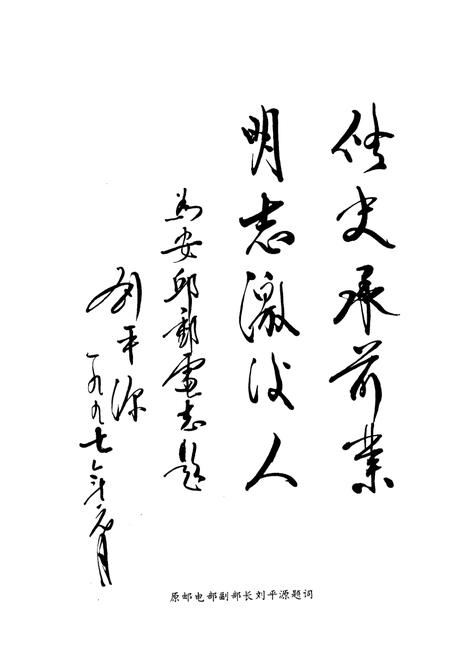 修史承前業
明志激後人
为安邱郵電志題
刘平源
一九九七年元月
原邮电部副部长刘平源题词